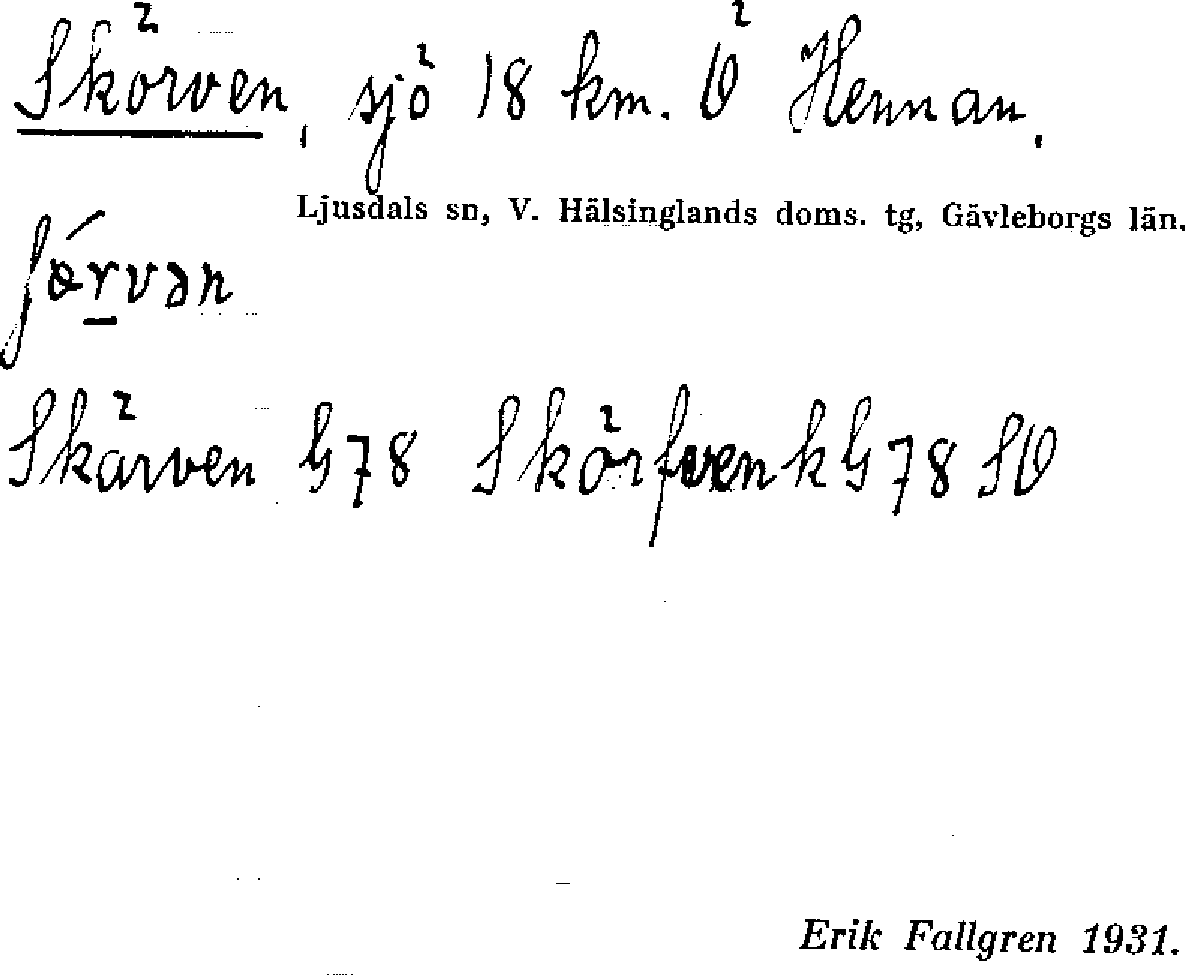 Skörven, sjö 18 km. Ö Hennan.
Ljusdals sn, V. Hälsinglands doms. tg, Gävleborgs län.
ʃǽrvən
Skärven G78 Skörfven kG78 SV
Erik Fallgren 1931.